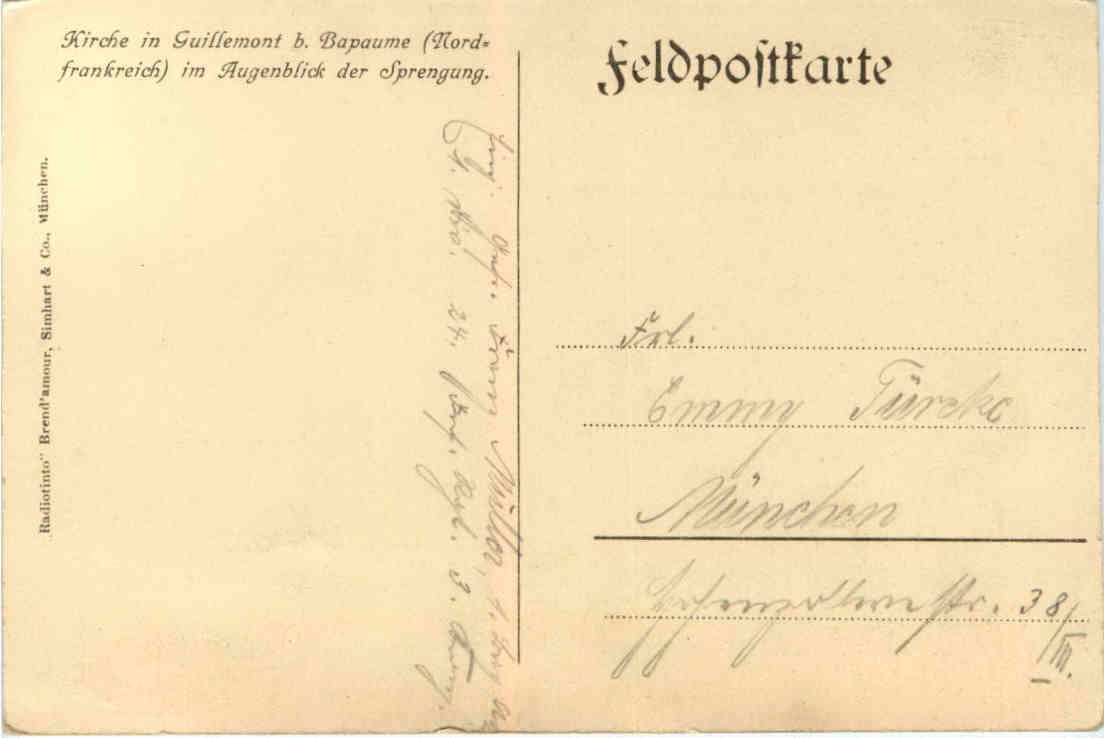 Kirche in Guillemont b. Bapaume (Nord=
frankreich) im Augenblick der Sprengung.
Feldpostkarte
"Radiotinto" Brend'amour, Simhart & Co., München.
Müller,
24. 3.
Frl.
Emmy Türcke
München
Hohenzollernstr. 38/
III.